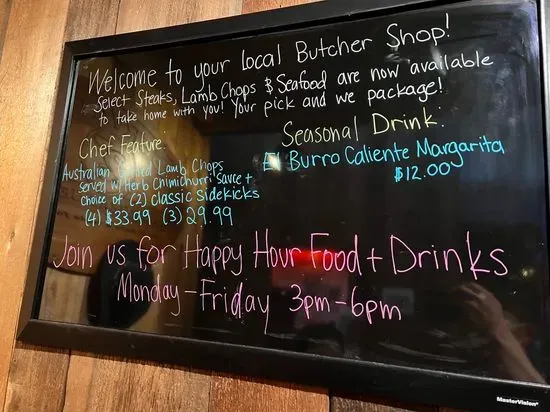 Welcome to your local Butcher Shop!
Select Steaks, Lamb Chops & Seafood are now available
to take home with you! Your pick and we package!
Chef Feature:
Australian Grilled Lamb Chops
served w/ Herb Chimichurri Sauce +
choice of (2) classic sidekicks
(4) $33.99 (3) 29.99
Seasonal Drink:
El Burro Caliente Margarita
$12.00
Join us for Happy Hour Food + Drinks
Monday-Friday 3pm-6pm
MasterVision